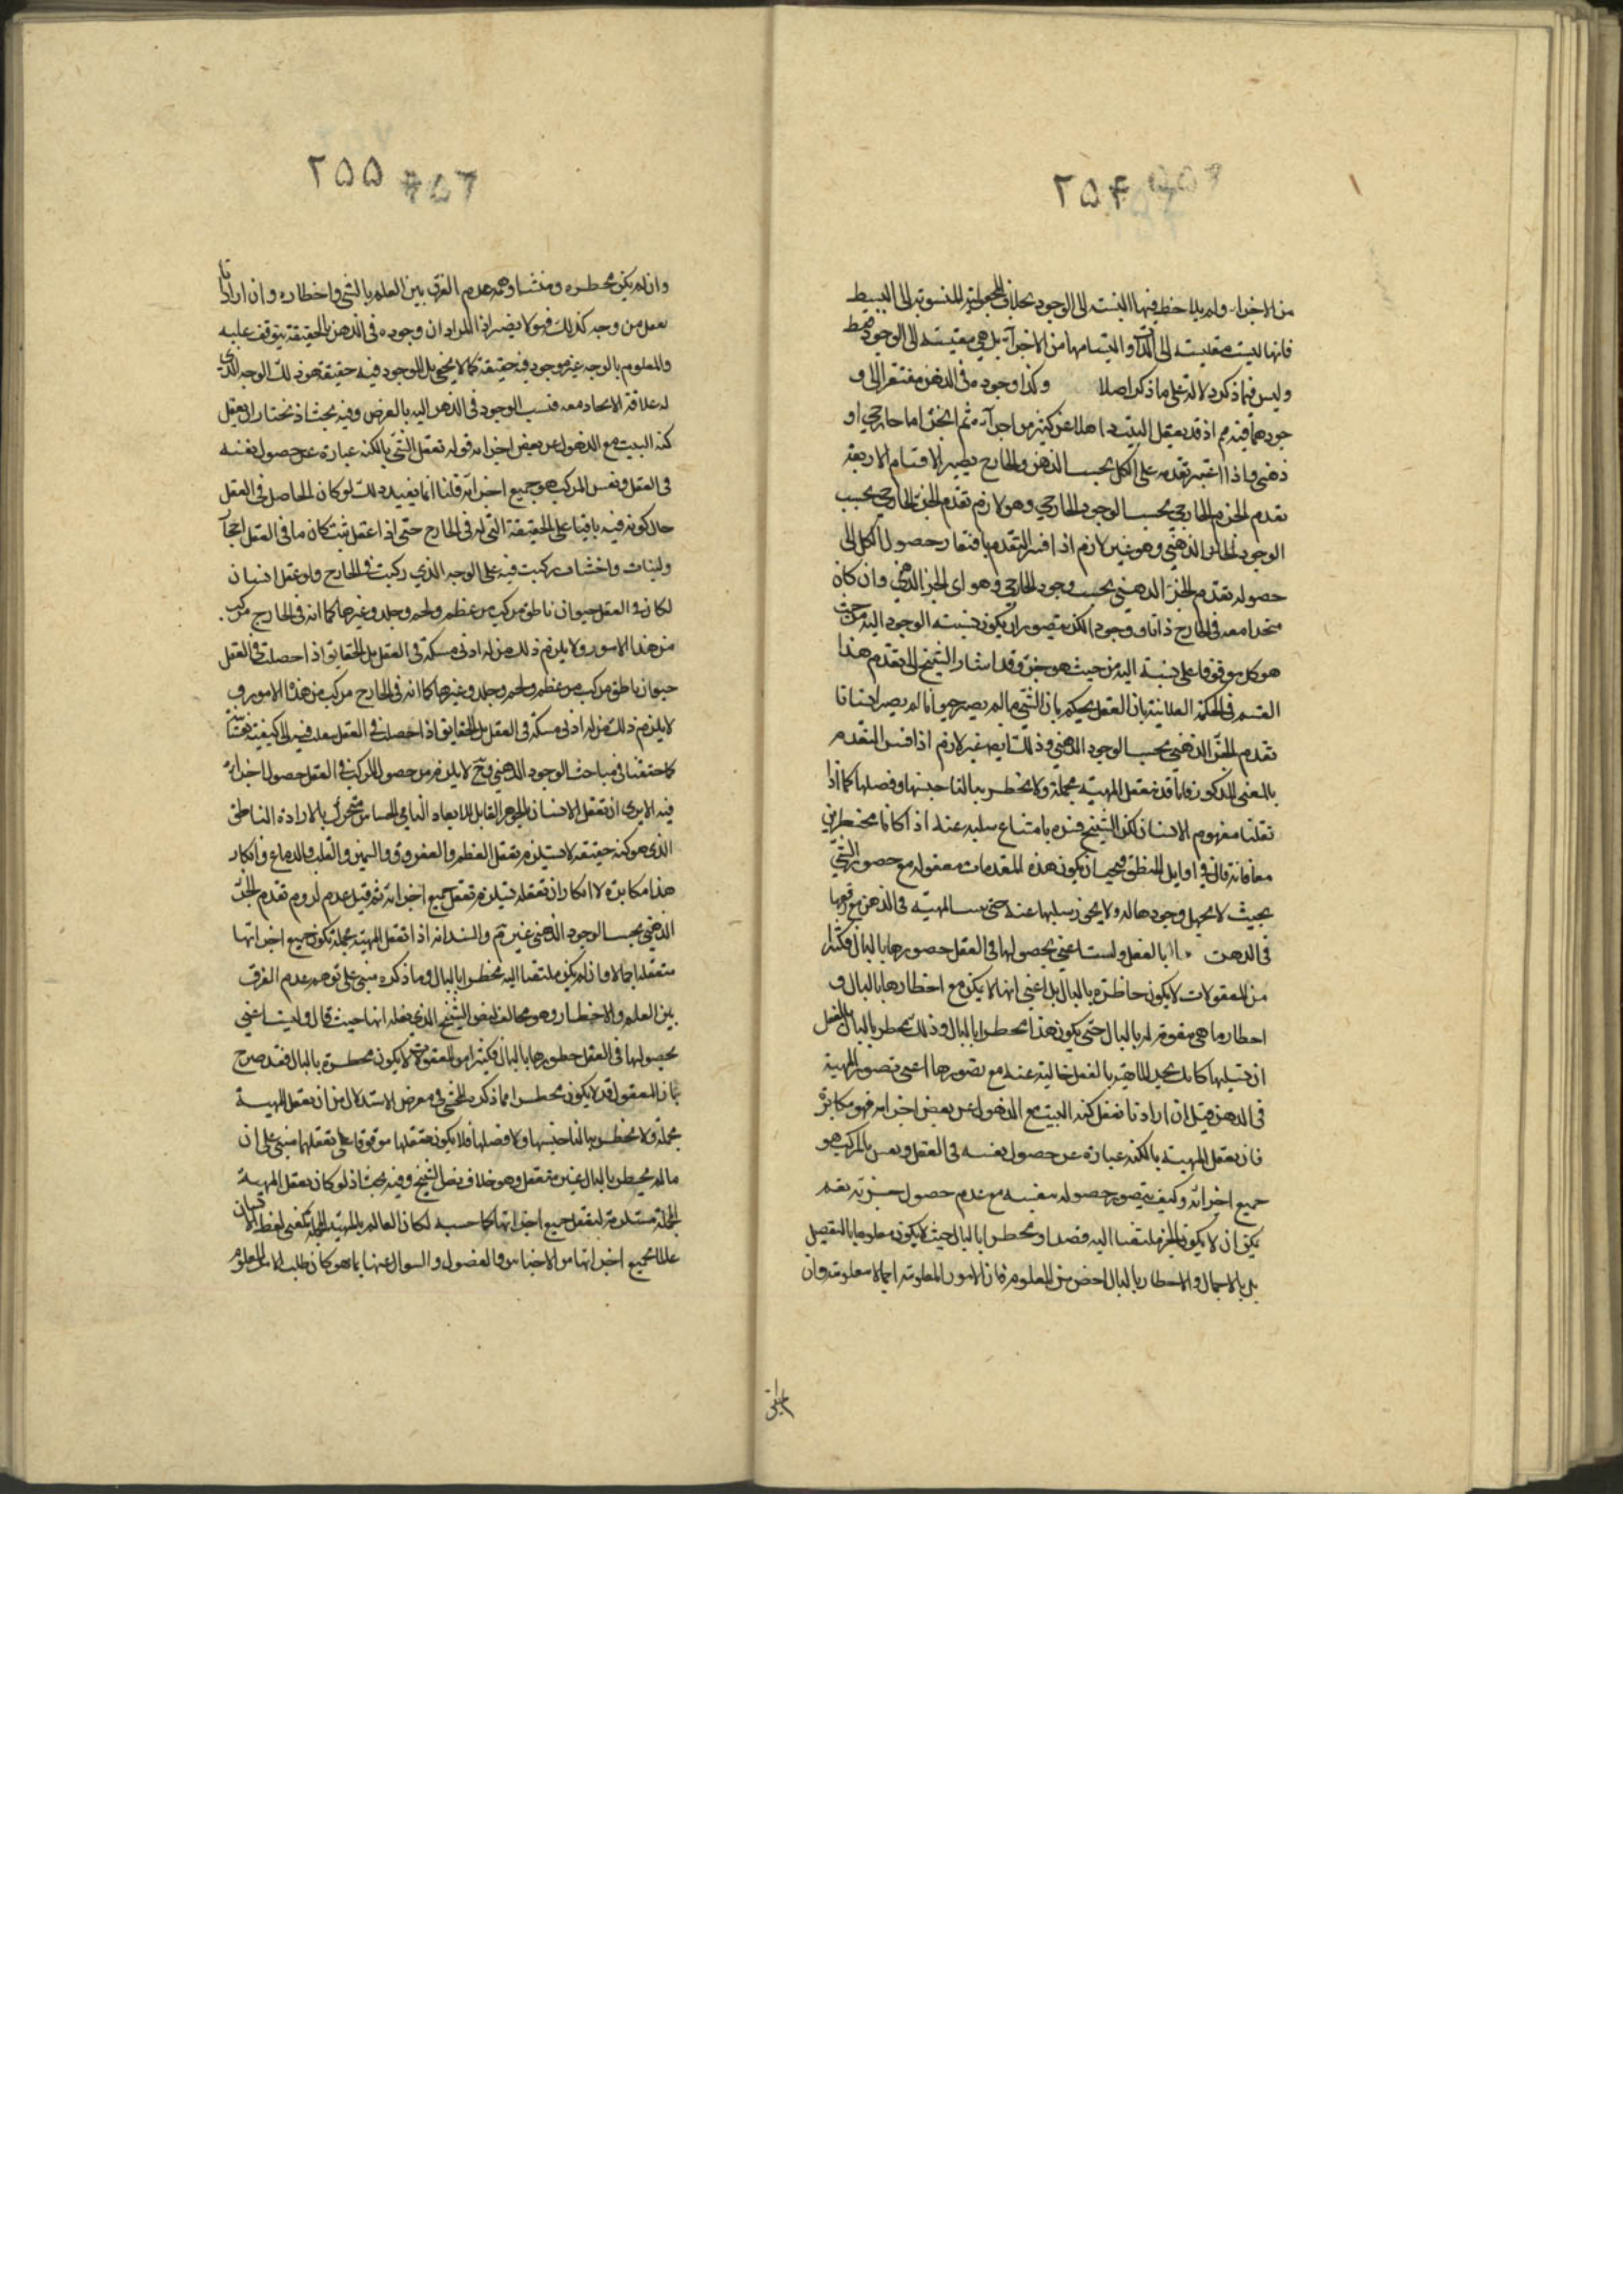 ۲۵۴
من الاجزاء ولم يلاحظ فيها النسبة الى الوجود بخلاف المجعولية المنسوبة الى البسيط
فانها ليست مقيسة الى الذات والتيامها من الاجزاء بل هي مقيسة الى الوجود فقط
وليس فيما ذكر دلالة على ما ذكر اصلا وكذا وجوده في الذهن مفتقر الى و
جودهما فيه مم اذ قد يعقل البيت ذاهلا عن كثير من اجزائه ثم الجزء اما خارجي او
ذهني واذا اعتبر تقدمه على الكل بحسب الذهن والخارج يصير الاقسام الاربعة
تقدم الجزء الخارجي بحسب الوجود الخارجي وهو لازم تقدم الجزء الخارجي بحسب
الوجود الذهني وهو غير لازم اذا فسر التقدم بافتقار حصول الكل الى
حصوله تقدم الجزء الذهني بحسب وجود الخارجي وهو اى الجزء الذهني وان كان
متحدا معه في الخارج ذاتا ووجودا لكن يتصور ان يكون نسبته الوجود اليه من حيث
هو كل موقوفا على نسبة اليه من حيث هو جزء وقد اشار الشيخ الى تقدم هذا
القسم في الحكمة العلائية بان العقل يحكم بان الشيء ما لم يصير حيوانا لم يصير انسانا
تقدم الجزء الذهني بحسب الوجود الذهني وذلك ايضا غير لازم اذا فسر التقدم
بالمعنى المذكور فانا قد نعقل المهية مجملة ولا يخطر ببالنا جنسها وفصلها كما اذا
تعقلنا مفهوم الانسان لكن الشيخ فسره بامتناع سلبه عنه اذا كانا مخطرين
معا فانه قال في اوايل المنطق فيجب ان يكون هذه المقدمات معقوله مع حصور الشيء
بحيث لا يجهل وجودها له ولا يجوز سلبها عنه حتى يسـ المهية في الذهن مع رفعها
في الذهن بالفعل ولست اعني بحصولها في العقل حصورها بالبال فكثيرا
من المعقولات لا يكون حاظرة بالبال بل اعني انها لا يكن مع اخطارها بالبال و
احطار ما هي مقومة له بالبال حتى يكون هذا مخطرا بالبال وذلك مخطر بالبال بالفعل
ان تسلبها كانك تجد الماهية بالفعل خالية عنه مع تصورها اعني تصور المهية
في الذهن قيل ان اراد انا نعقل كنه البيت مع الذهول عن بعض اجزائه فهو مكابرة
فان تعقل المهية بالكنه عبارة عن حصول نفسه في العقل ونفس المركب هو
جميع اجزائه وكيف يتصور حصوله بنفسه مع عدم حصول جزئه نعم
يكن ان لا يكون الجزء ملتفتا اليه قصدا ومخطرا بالبال حيث لا يكون معلوما بالتفصيل
بل بالاجمال والاحطار بالبال اخص من المعلوم فان الامور المعلومة اجمالا معلومة وان
۲۵۵
وان لم يكن مخطرة ومنشاء وهمه عدم الفرق بين العلم بالشي واخطاره وان اراد انا
نعقل من وجه كذلك فهو لا يضير اذ المراد ان وجوده في الذهن بالحقيقة يتوقف عليه
والمعلوم بالوجه غير موجود فيه حقيقة كما لا يخفى بل الموجود فيه حقيقة هو ذلك الوجه الذي
له علاقة الاتحاد معه فنسب الوجود في الذهن اليه بالعرض وفيه بحث اذ نختار انه يعقل
كنه البيت مع الذهول عن بعض اجزائه قوله تعقل الشي بالكنه عبارة عن حصول نفسه
في العقل ونفس المركب هو جميع اجزائه قلنا انما يفيد ذلك لو كان الحاصل في العقل
حال كونه فيه باقيا على الحقيقة التي له في الخارج حتى اذا عقل بيت كان ما في العقل احجارا
ولبنات واخشاب ركبت فيه على الوجه الذي ركبت في الخارج ولو عقل انسان
لكان في العقل حيوان ناطق مركب من عظم ولحم وجلد وغيرها كما انه في الخارج مركب
من هذا الامور ولا يلزم ذلك من له ادنى مسكة في العقل بل الحقايق اذا حصلت في العقل
حيوان ناطق مركب من عظم ولحم وجلد وغيرها كما انه في الخارج مركب من هذه الامور و
لا يلزم ذلك من له ادنى مسكة في العقل بل الحقايق اذا حصلت في العقل ينقلب فيه الى كيفية نفسانية
كما حققنا في مباحث الوجود الذهني وح لا يلزم من حصول المركب في العقل حصول اجزائه
فيه الا يرى ان تعقل الانسان بالجوهر القابل للابعاد النامي الحساس متحرك بالارادة الناطق
الذي هو كنه حقيقته لا يستلزم تعقل العظم والعصر والعروق والسمين والقلب والدماغ وانكار
هذا مكابرة لا انكار ان تعقله يستلزم تعقل جميع اجزائه ثم قيل عدم لزوم تقدم الجزء
الذهني بحسب الوجود الذهني غير تم والسند انه اذا تعقل المهية مجملة يكون جميع اجزائها
متعقلة اجمالا وان لم يكن ملتفتا اليه مخطرا بالبال وما ذكره مبني على توهم عدم الفرق
بين العلم والاخطار وهو مخالف لنص الشيخ الذي نقله انها حيث قال وليت اعني
بحصولها في العقل خطورها بالبال فكثيرا من المعقولات لا يكون مخطرة بالبال فقد صرح
بان المعقول قد لا يكون مخطرا فما ذكره المحشي في معرض الاستدلال من ان تعقل المهية
مجملة ولا يخطر ببالنا جنسها ولا فصلها فلا يكون تعقلها موقوفا على تعقلهما مبني على ان
ما لم يخطر بالبال غير متعقل وهو خلاف نص الشيخ وفيه بحث اذ لو كان تعقل المهية
المجملة مستلزمة لتعقل جميع اجزائها كما حسبه لكان العالم بالمهية المجملة كمعنى لفظ الانسان
عالما بجميع اجزائها من الاجناس والفصول والسوال عنها بما هو كان طلب الامر المعلوم